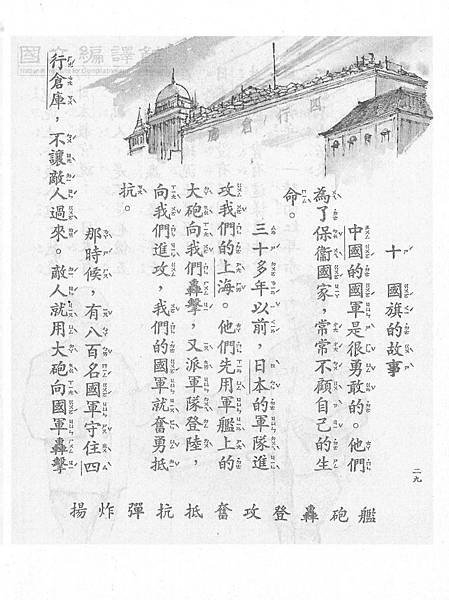 十　國旗的故事
中國的國軍是很勇敢的。他們
為了保衞國家，常常不顧自己的生
命。
三十多年以前，日本的軍隊進
攻我們的上海。他們先用軍艦上的
大砲向我們轟擊，又派軍隊登陸，
向我們進攻，我們的國軍就奮勇抵
抗。
那時候，有八百名國軍守住四
行倉庫，不讓敵人過來。敵人就用大砲向國軍轟擊
二九
艦砲轟登攻奮抵抗彈炸揚
四行倉庫
國立編譯館